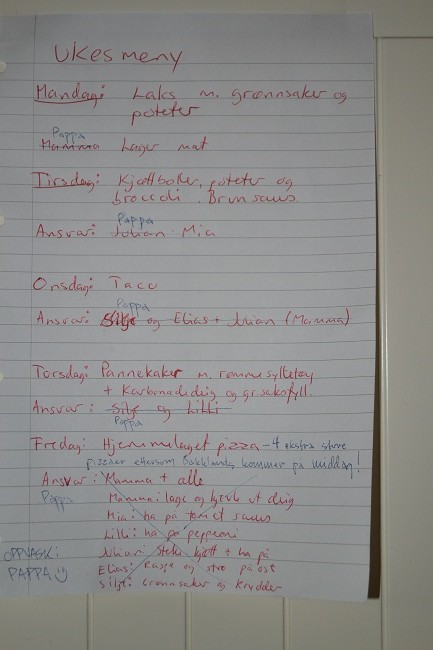 Ukesmeny
Mandag: Laks m. grønnsaker og
poteter
Pappa
Mamma Lager mat
Tirsdag: Kjøttboller, poteter og
broccoli. Brun saus.
Pappa
Ansvar: Julian Mia
Onsdag: Taco
Pappa
Ansvar: Silje og Elias + Julian (Mamma)
Torsdag: Pannekaker m. rømme syltetøy
+ Karbonadedeig og gr.sakfyll.
Ansvar: Silje og Lilli
Pappa
Fredag: Hjemmelaget pizza - 4 ekstra store
pizzaer ettersom kommer på middag!
Ansvar: Mamma + alle
Pappa Mamma: lage og kjevle ut deig
Mia: ha på tomatsaus
Lilli: ha på pepperoni
OPPVASK: Julian: steke kjøtt + ha på
PAPPA Elias: Raspe og strø på ost
Silje: Grønnsaker og krydder